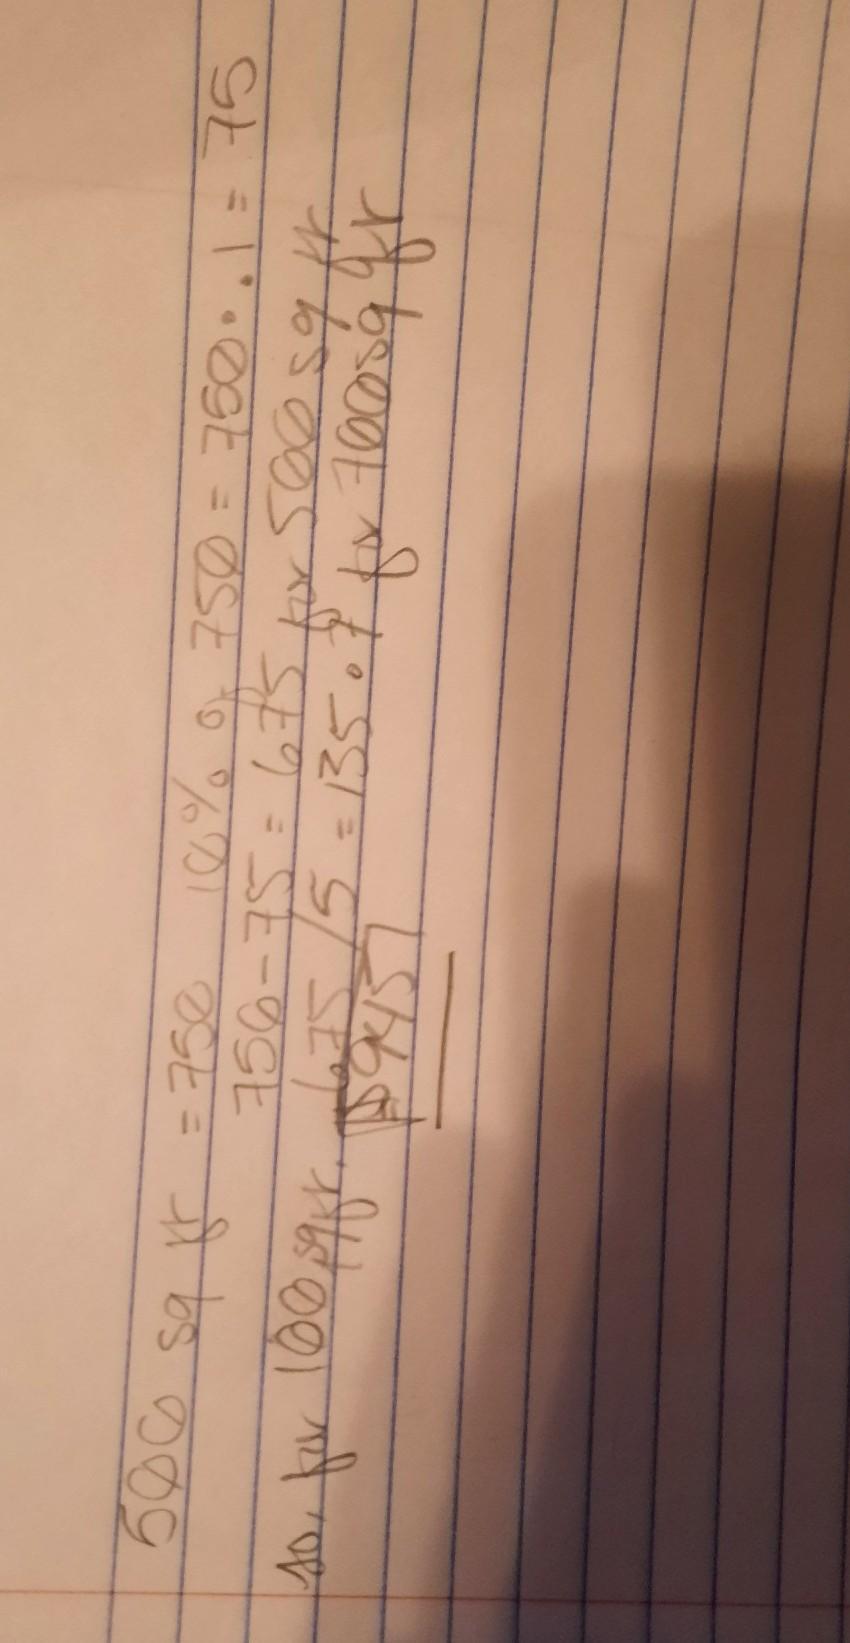 500 sq ft = 750 10% of 750 = 750 • .1 = 75
750 - 75 = 675 for 500 sq ft
so, for 100 sq ft. 675 / 5 = 135 • 7 for 700 sq ft
$945